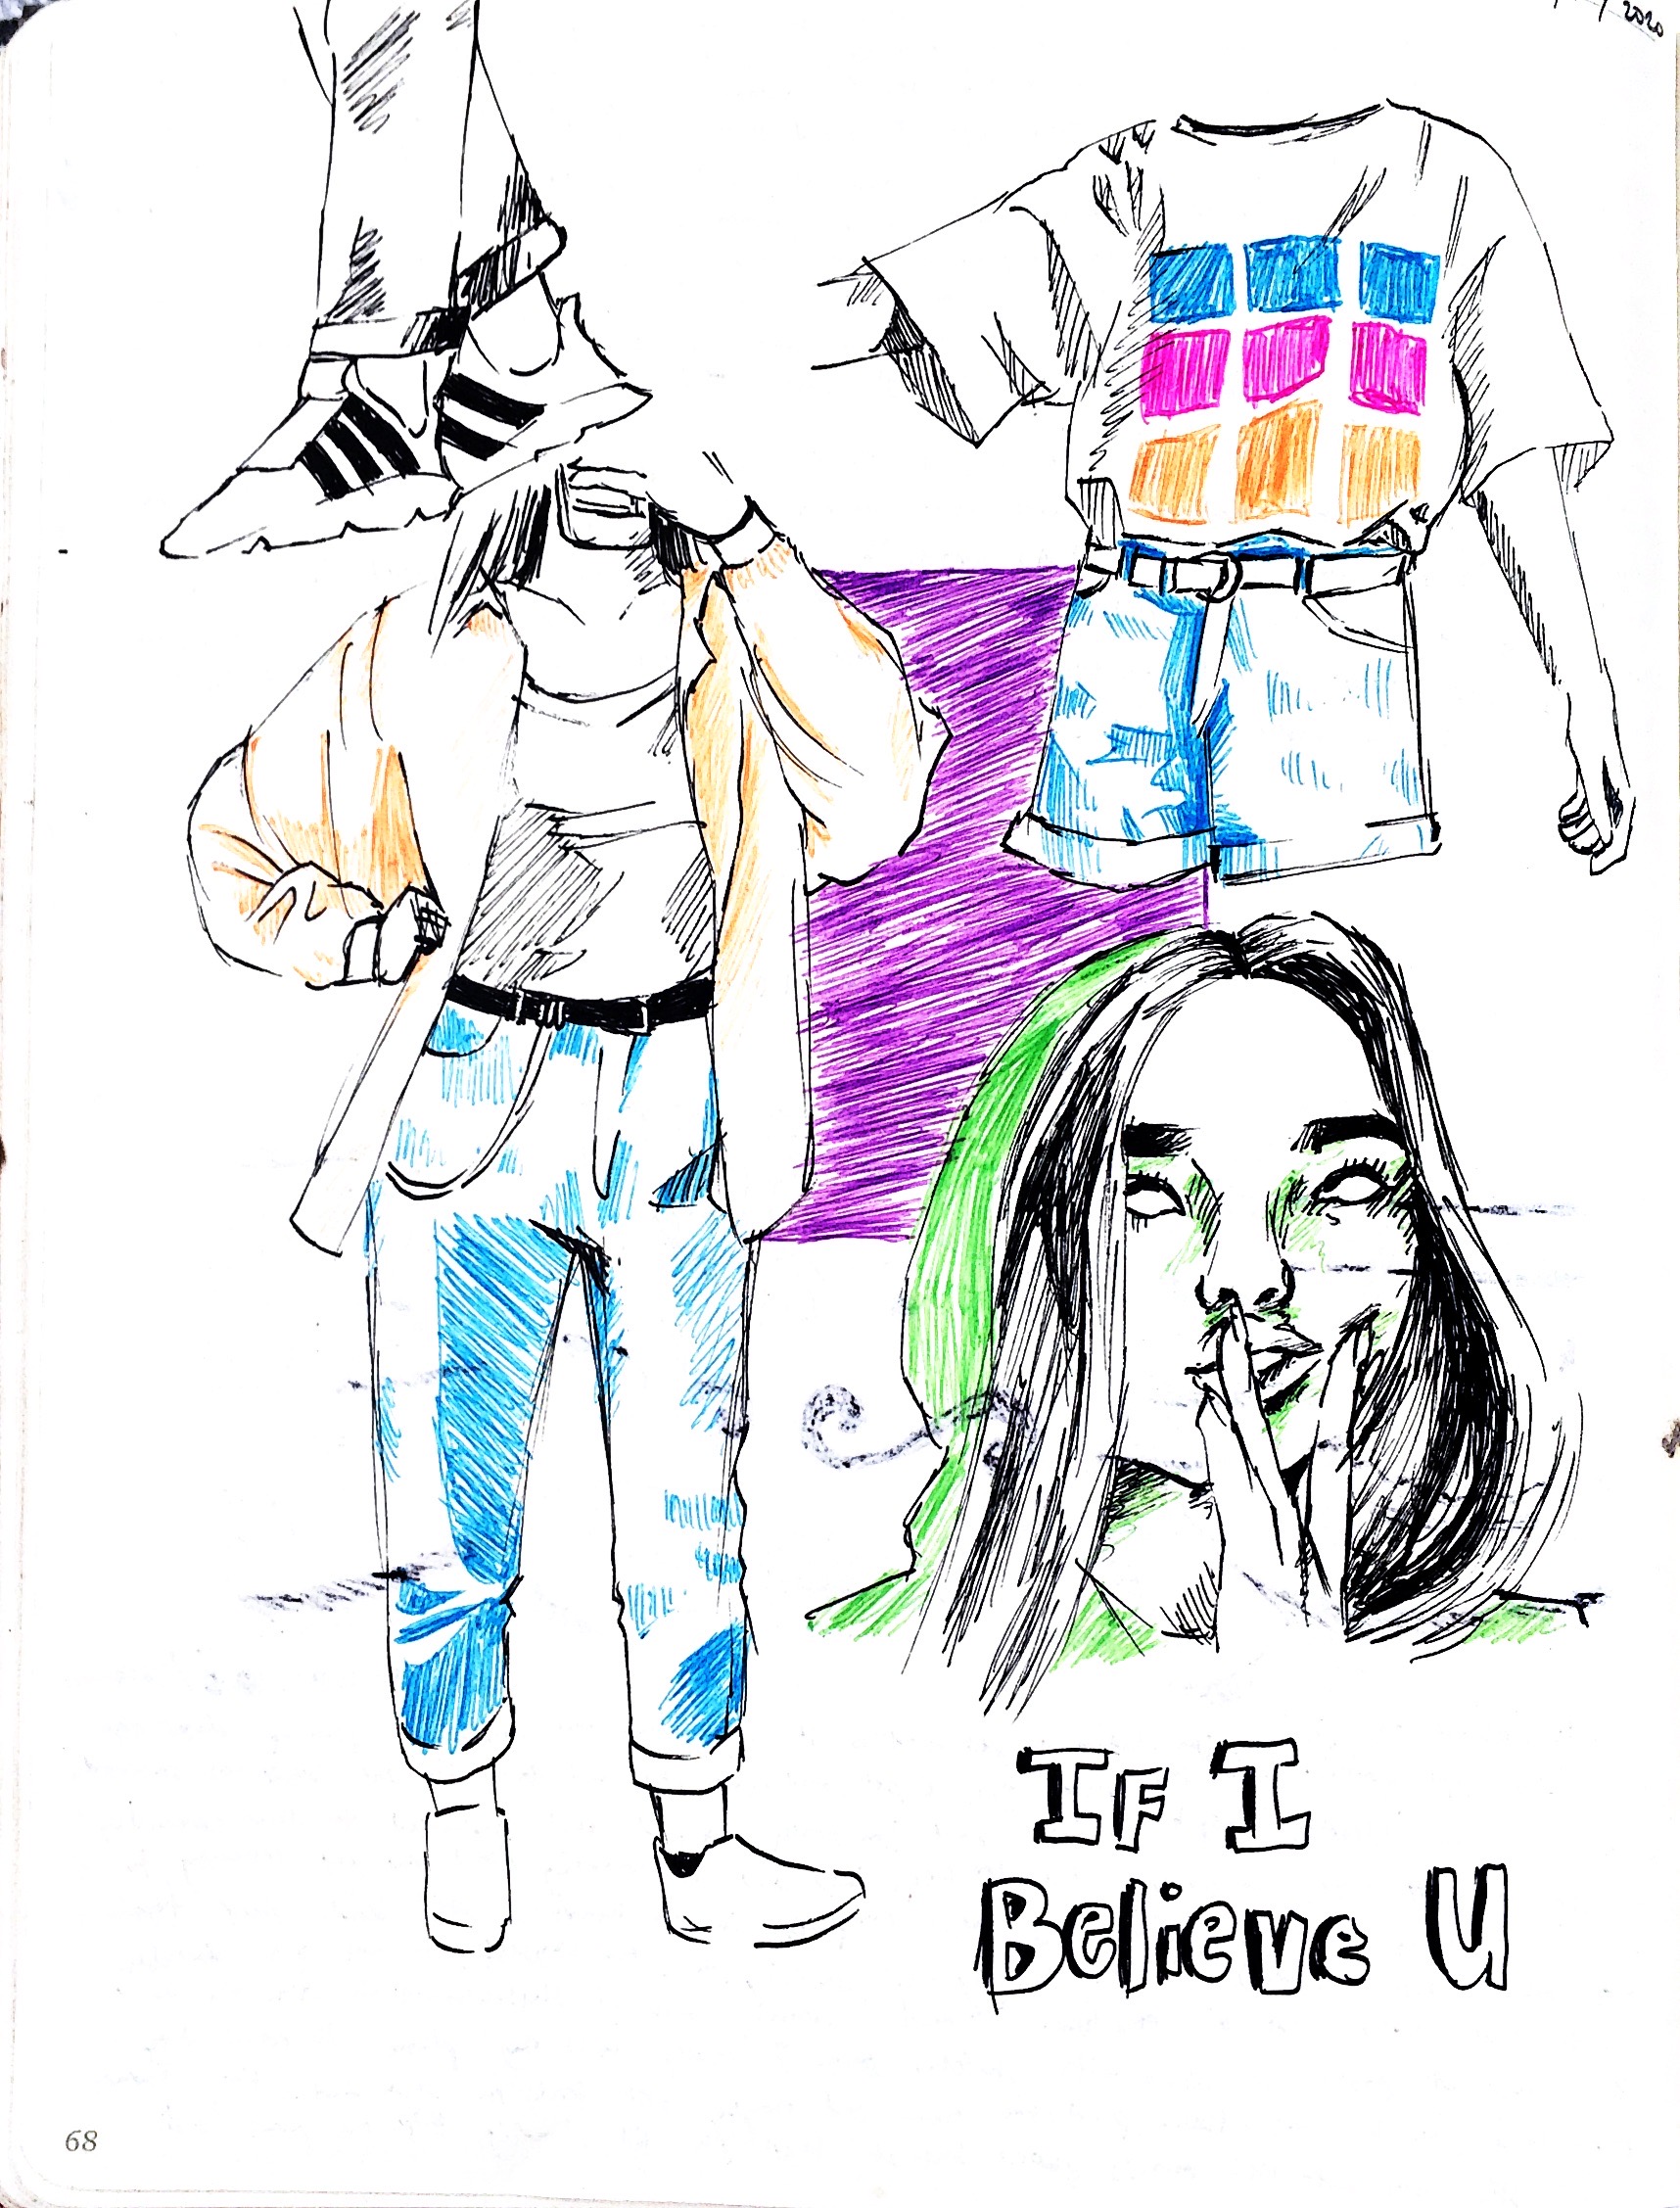 2020
IF I
Believe U
68